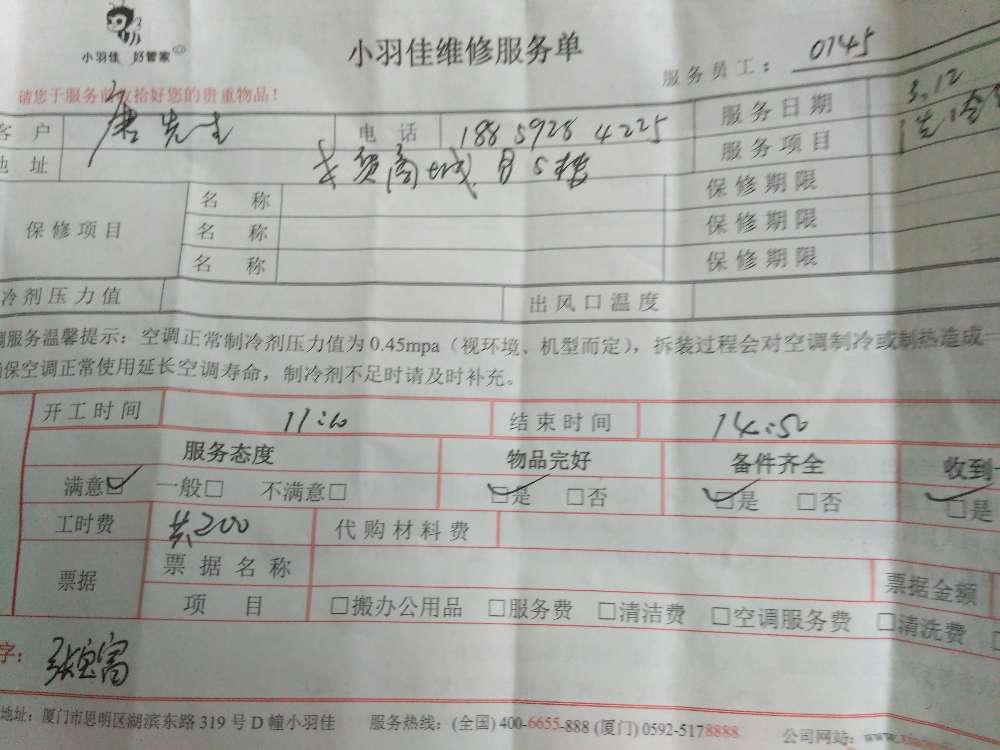 小羽佳 好管家
小羽佳维修服务单
服务员工: 0145
请您于服务前收拾好您的贵重物品!
客户 唐先生 电话 188 5928 4225 服务日期 3.12
地址 贸商城 服务项目 洗
保修项目 名称 保修期限
名称 保修期限
名称 保修期限
冷剂压力值 出风口温度
调服务温馨提示: 空调正常制冷剂压力值为 0.45mpa (视环境、机型而定), 拆装过程会对空调制冷或制热造成一
确保空调正常使用延长空调寿命, 制冷剂不足时请及时补充。
开工时间 11:10 结束时间 14:50
服务态度 物品完好 备件齐全 收到
满意☑ 一般□ 不满意□ ☑是 □否 ☑是 □否 ☑是
工时费 共200 代购材料费
票据 票据名称 票据金额
项目 □搬办公用品 □服务费 □清洁费 □空调服务费 □清洗费
字:
地址: 厦门市思明区湖滨东路 319 号 D 幢小羽佳 服务热线: (全国) 400-6655-888 (厦门) 0592-5178888 公司网站: www.